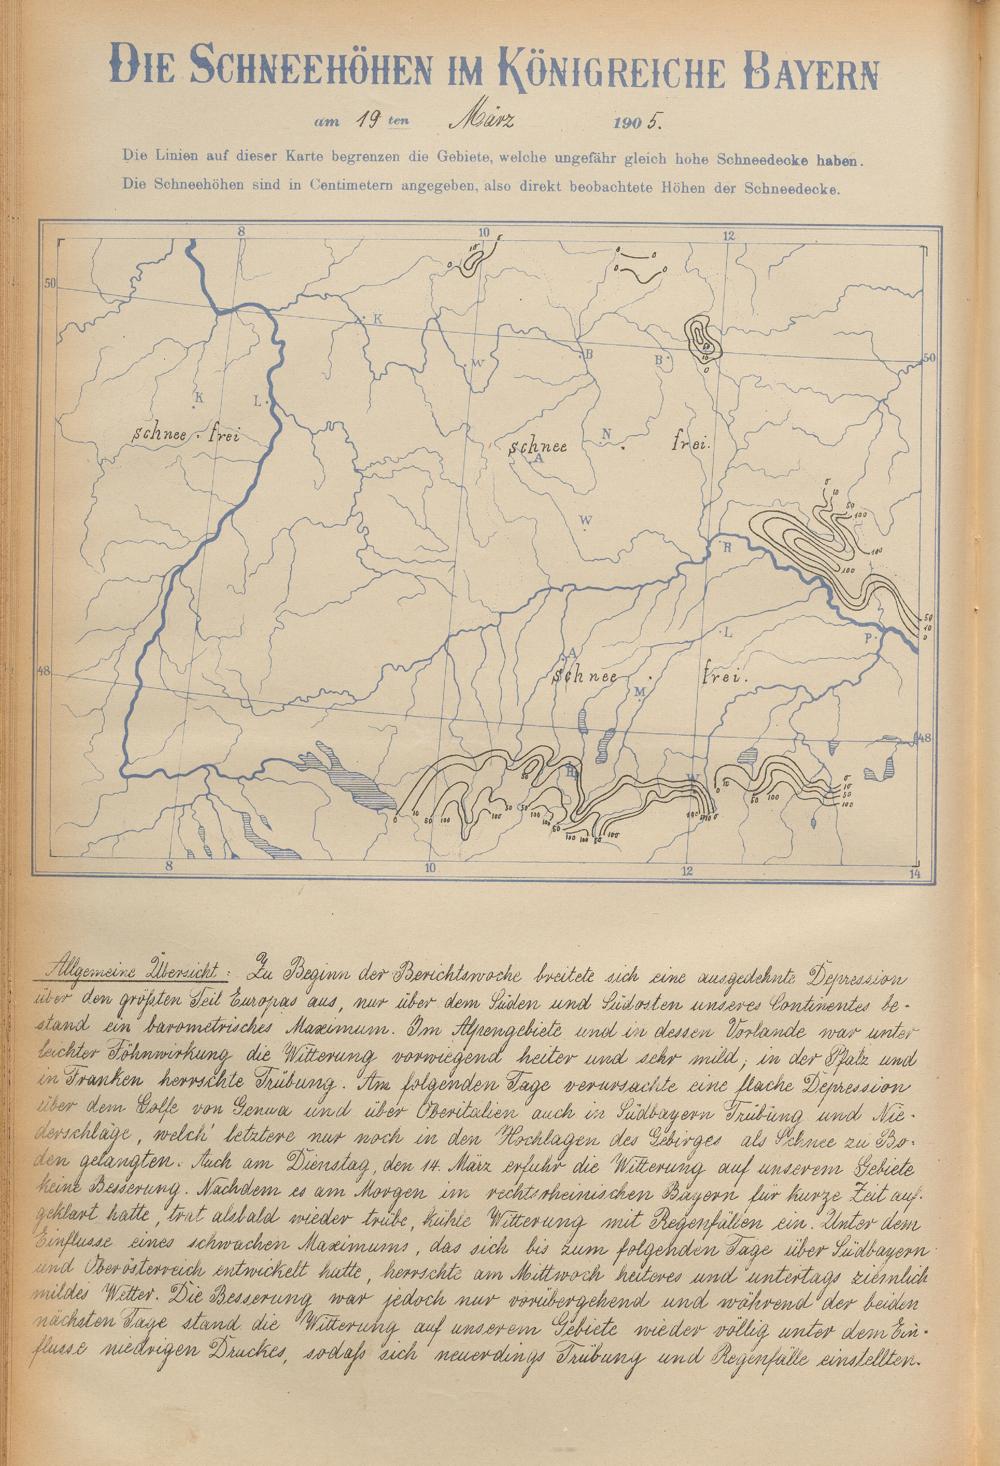 DIE SCHNEEHÖHEN IM KÖNIGREICHE BAYERN
am 19 ten März 1905.
Die Linien auf dieser Karte begrenzen die Gebiete, welche ungefähr gleich hohe Schneedecke haben.
Die Schneehöhen sind in Centimetern angegeben, also direkt beobachtete Höhen der Schneedecke.
8 10 12
50
K
W B B
50
K L
schnee frei
schnee N frei.
A
W
R
L
P
A
schnee frei.
M
48
48
W
8 10 12 14
Allgemeine Übersicht: Zu Beginn der Berichtswoche breitete sich eine ausgedehnte Depression
über den größten Teil Europas aus, nur über dem Süden und Südosten unseres Continentes be-
stand ein barometrisches Maximum. Im Alpengebiete und in dessen Vorlande war unter
leichter Föhnwirkung die Witterung vorwiegend heiter und sehr mild; in der Pfalz und
in Franken herrschte Trübung. Am folgenden Tage verursachte eine flache Depression
über dem Golfe von Genua und über Oberitalien auch in Südbayern Trübung und Nie-
derschläge, welch' letztere nur noch in den Hochlagen des Gebirges als Schnee zu Bo-
den gelangten. Auch am Dienstag, den 14. März erfuhr die Witterung auf unserem Gebiete
keine Besserung. Nachdem es am Morgen im rechtsrheinischen Bayern für kurze Zeit auf-
geklärt hatte, trat alsbald wieder trübe, kühle Witterung mit Regenfällen ein. Unter dem
Einflusse eines schwachen Maximums, das sich bis zum folgenden Tage über Südbayern
und Oberösterreich entwickelt hatte, herrschte am Mittwoch heiteres und untertags ziemlich
mildes Wetter. Die Besserung war jedoch nur vorübergehend und während der beiden
nächsten Tage stand die Witterung auf unserem Gebiete wieder völlig unter dem Ein-
flusse niedrigen Druckes, sodaß sich neuerdings Trübung und Regenfälle einstellten.